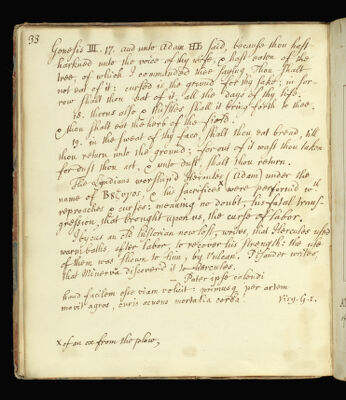 33
Genesis III. 17. and unto Adam HE said, because thou hast
harkned unto the voice of thy wife, & hast eaten of the
tree, of which I commanded thee saying Thou shalt
not eat of it: cursed is the ground for thy sake; in sor-
row shalt thou eat of it, all the days of thy life.
18. thorns also & thistles shall it bring forth to thee,
& thou shalt eat the herb of the field.
19. in the sweat of thy face, shalt thou eat bread, till
thou return unto the ground; for out of it wast thou taken
for dust thou art, & unto dust, shalt thou return.
The Lyndians worship'd Hercules (Adam) under the
name of & his sacrifices x were perform'd wth
reproaches & curses: meaning no doubt, his fatal trans-
gression, that brought upon us, the curse of labor.
Ibycus an old historian now lost, writes, that Hercules used
warm baths, after labor, to recover his strength: the use
of them was shown to him, by Vulcan. Pisander writes,
that Minerva discover'd it to Hercules.
— Pater ipse colendi
haud facilem esse viam voluit: primusq per artem
movit agros, curis acuens mortalia corda. Virg. G.1.
x of an ox from the plow,